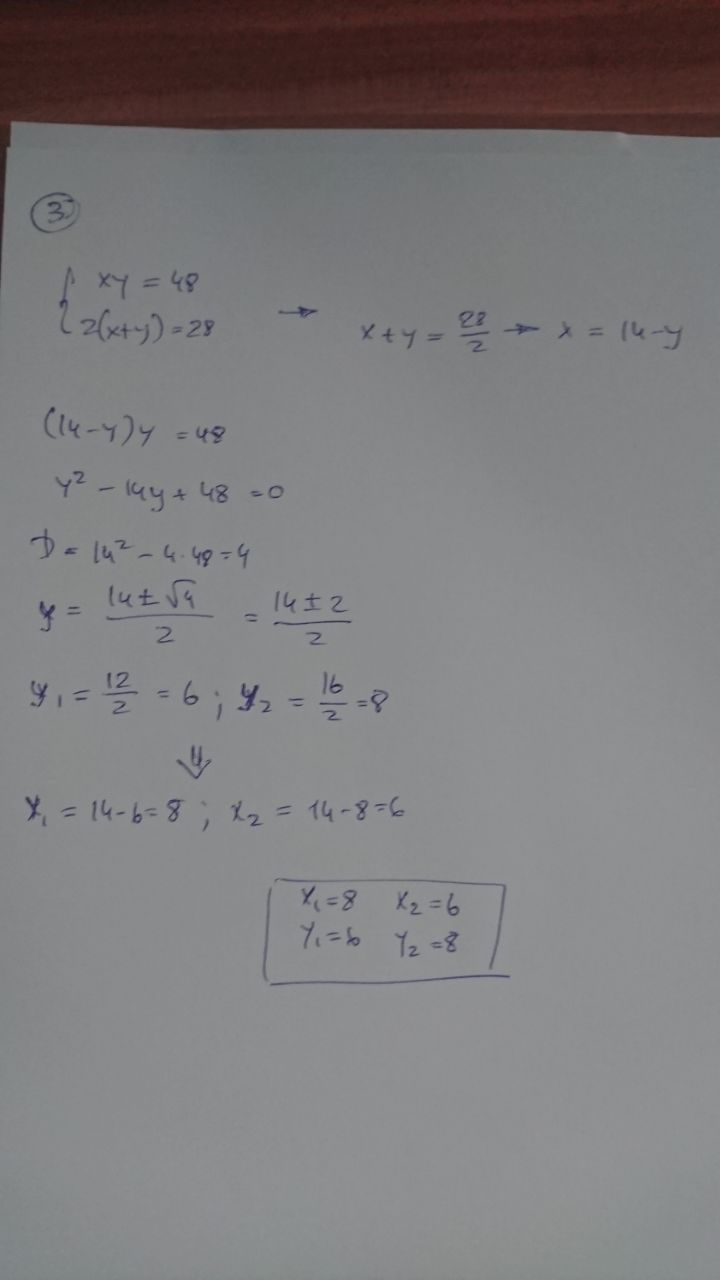 3
{ xy = 48
2(x+y) = 28 → x + y = 28/2 → x = 14 - y
(14-y)y = 48
y² - 14y + 48 = 0
D = 14² - 4·48 = 4
y = (14 ± √4)/2 = (14 ± 2)/2
y₁ = 12/2 = 6 ; y₂ = 16/2 = 8
⇓
x₁ = 14-6 = 8 ; x₂ = 14-8 = 6
x₁ = 8 x₂ = 6
y₁ = 6 y₂ = 8